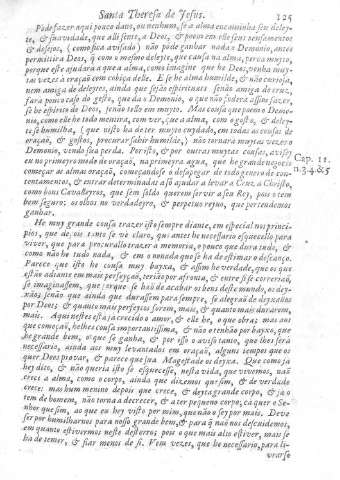 Santa Theresa de Jesus. 125
Póde fazer aqui pouco dano, ou nenhum, se a alma encaminha seu deley-
te, & suavidade, que alli sente, a Deos, & poem em elle seus pensamentos
& desejos, (como fica avisado) não póde ganhar nada o Demonio, antes
permittirá Deos, que com o mesmo deleyte, que causa na alma, perca muyto,
porque este ajudará a que a alma, como imagine que he Deos, venha muy-
tas vezes à oração com cobiça delle. E se he alma humilde, & não curiosa,
nem amiga de deleytes, ainda que sejão espirituaes senão amiga da cruz,
fará pouco caso do gosto, que dá o Demonio, o que não poderá assim fazer,
se he espirito de Deos, senão tello em muyto. Mas cousa que poem o Demo-
nio, como elle he todo mentira, com ver, que a alma, com o gosto, & deley-
te se humilha, (que nisto ha de ter muyto cuydado, em todas as cousas de
oração, & gostos, procurar sahir humilde,) não tornará muytas vezes o
Demonio, vendo sua perda. Por isto, & por outras muytas cousas, avisey
eu no primeyro modo de oração, na primeyra agua, que he grande negocio
começar as almas oração, começandose a desapegar de todo genero de con-
tentamentos, & entrar determinadas a só ajudar a levar a Cruz, a Christo,
como bons Cavalleyros, que sem soldo querem servir a seu Rey, pois o tem
bem seguro: os olhos no verdadeyro, & perpetuo reyno, que pertendemos
ganhar.
Cap. 11.
n. 3 4 & 5
He muy grande cousa trazer isto sempre diante, em especial nos princi-
pios, que depois tanto se ve claro, que antes he necessario esquecello para
viver, que para procurallo trazer a memoria, o pouco que dura tudo, &
como não he tudo nada, & em o nonada que se ha de estimar o descanço.
Parece que isto he cousa muy bayxa, & assim he verdade, que os que
estão adiante em mais perfeyção, terião por afronta, & entre si se correrião,
se imaginassem, que porque se hão de acabar os bens deste mundo, os dey-
xão; senão que ainda que durassem para sempre, se alegrão de deyxallos
por Deos: & quanto mais perfeytos forem, mais, & quanto mais durarem,
mais. Aqui nestes está ja crecido o amor, & elle he, o que obra; mas aos
que começão, he lhes cousa importantissima, & não o tenhão por bayxo, que
he grande bem, o que se ganha, & por isso o aviso tanto, que lhes será
necessario, ainda aos muy levantados em oração, alguns tempos que os
quer Deos provar, & parece que sua Magestade os deyxa. Que como ja
hey dito, & não queria isto se esquecesse, nesta vida, que vivemos, não
crece a alma, como o corpo, ainda que dizemos que sim, & de verdade
crece: mas hum menino depois que crece, & deyta grande corpo, & ja o
tem de homem, não torna a decrecer, & a ter pequeno corpo; cá quer o Se-
nhor que sim, ao que eu hey visto por mim, que não o sey por mais. Deve
ser por humilharnos para nosso grande bem, & para que não nos descuidemos,
em quanto estivermos neste desterro; pois o que mais alto estiver, mais se
ha de temer, & fiar menos de si. Vem vezes, que he necessario, para li-
vrarse